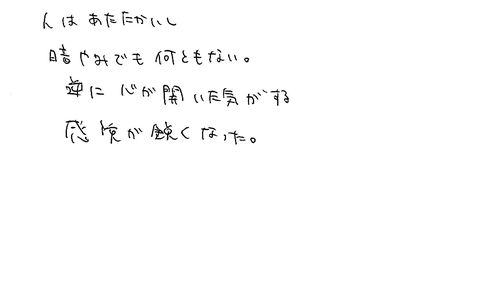 人はあたたかいし
暗やみでも何ともない。
逆に心が開いた気がする
感覚が鋭くなった。